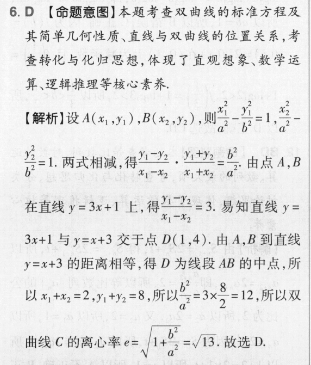 6. D 【命题意图】本题考查双曲线的标准方程及
其简单几何性质、直线与双曲线的位置关系,考
查转化与化归思想,体现了直观想象、数学运
算、逻辑推理等核心素养.
【解析】设 A(x₁,y₁),B(x₂,y₂),则 x₁²/a² - y₁²/b² = 1, x₂²/a² -
y₂²/b² = 1. 两式相减,得 (y₁-y₂)/(x₁-x₂) · (y₁+y₂)/(x₁+x₂) = b²/a². 由点 A,B
在直线 y=3x+1 上,得 (y₁-y₂)/(x₁-x₂) = 3. 易知直线 y=
3x+1 与 y=x+3 交于点 D(1,4). 由 A,B 到直线
y=x+3 的距离相等,得 D 为线段 AB 的中点,所
以 x₁+x₂=2,y₁+y₂=8,所以 b²/a² = 3× 8/2 = 12,所以双
曲线 C 的离心率 e= √(1+b²/a²) = √13. 故选 D.